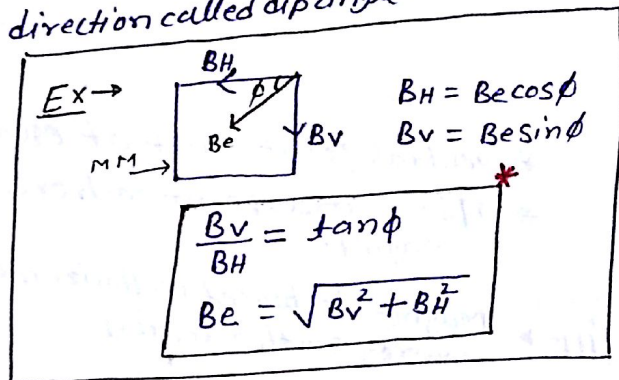 direction called dip angle
Ex→
BH
ϕ
Be
BV
MM→
BH = Be cosϕ
Bv = Be sinϕ
*
Bv/BH = tanϕ
Be = √Bv² + BH²